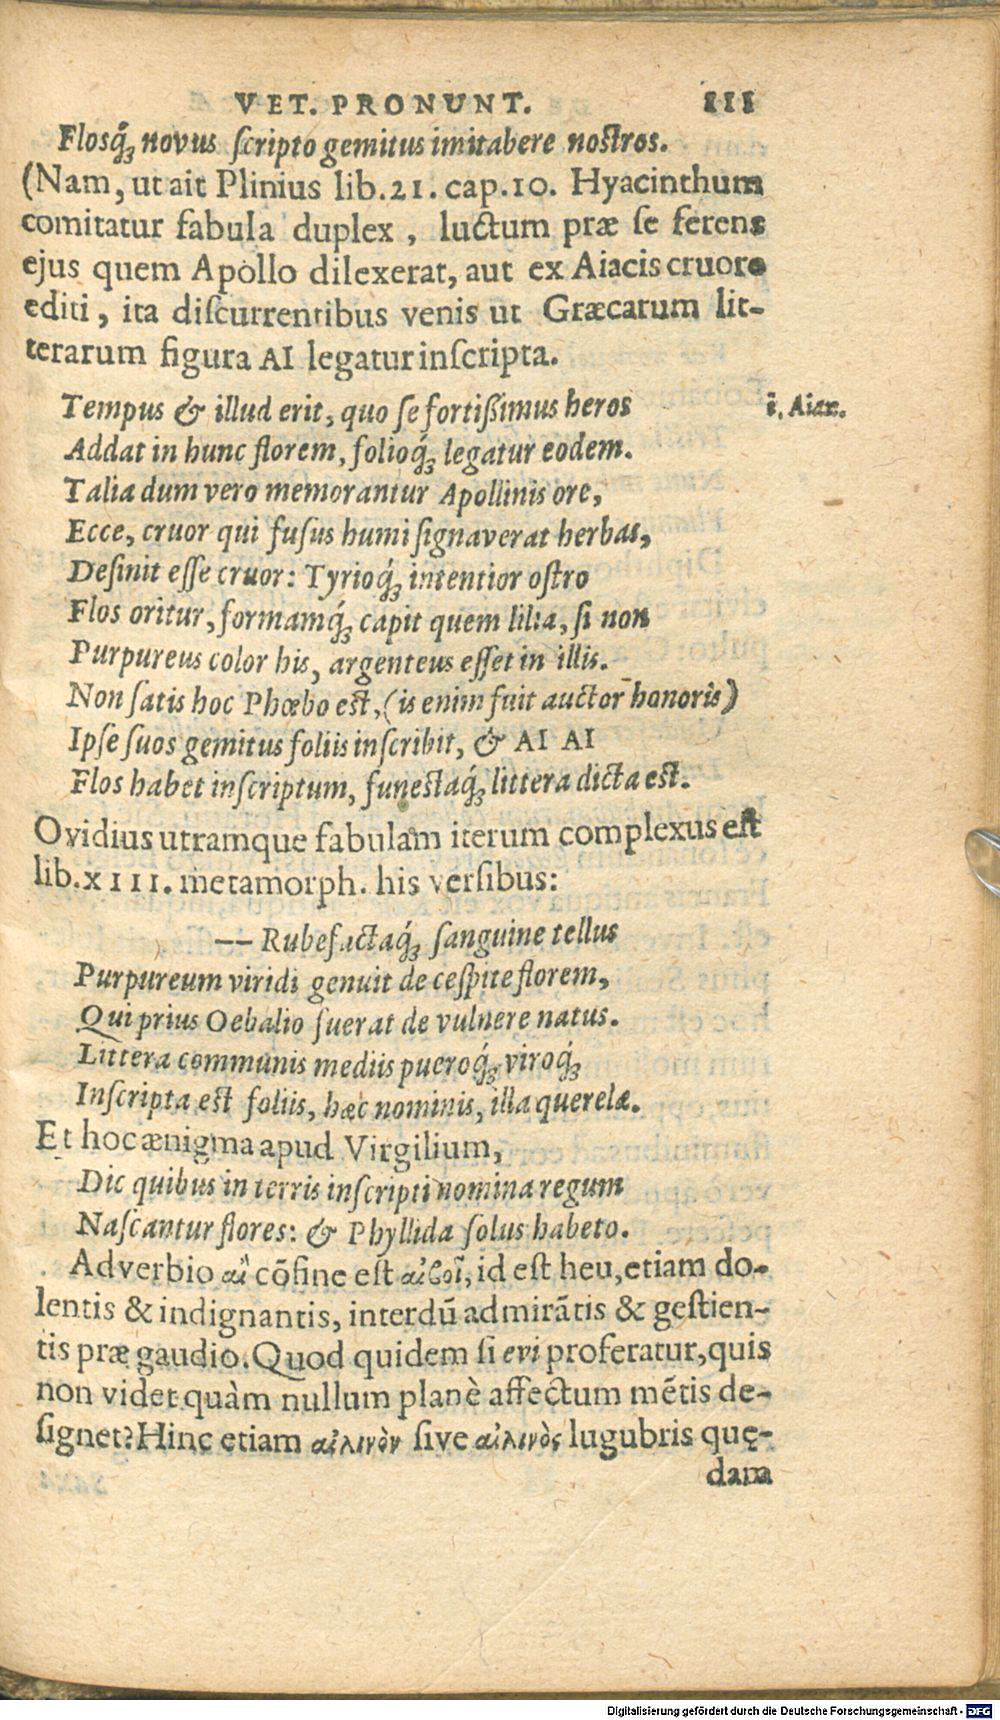 VET. PRONUNT. 111
Flosq́₃ novus scripto gemitus imitabere nostros.
(Nam, ut ait Plinius lib.21. cap.10. Hyacinthum
comitatur fabula duplex, luctum præ se ferens
ejus quem Apollo dilexerat, aut ex Aiacis cruore
editi, ita discurrentibus venis ut Græcarum lit-
terarum figura AI legatur inscripta.
Tempus & illud erit, quo se fortißimus heros
i. Aiax.
Addat in hunc florem, folioq́₃ legatur eodem.
Talia dum vero memorantur Apollinis ore,
Ecce, cruor qui fusus humi signaverat herbas,
Desinit esse cruor: Tyrioq́₃ intentior ostro
Flos oritur, formamq́₃ capit quem lilia, si non
Purpureus color his, argenteus esset in illis.
Non satis hoc Phœbo est, (is enim fuit auctor honoris)
Ipse suos gemitus foliis inscribit, & AI AI
Flos habet inscriptum, funestaq́₃ littera dicta est.
Ovidius utramque fabulam iterum complexus est
lib. XIII. metamorph. his versibus:
-- Rubefactaq́₃ sanguine tellus
Purpureum viridi genuit de cespite florem,
Qui prius Oebalio fuerat de vulnere natus.
Littera communis mediis pueroq́₃ viroq́₃
Inscripta est foliis, hæc nominis, illa querelæ.
Et hoc ænigma apud Virgilium,
Dic quibus in terris inscripti nomina regum
Nascantur flores: & Phyllida solus habeto.
Adverbio αἲ cõfine est αἰβοῖ, id est heu, etiam do-
lentis & indignantis, interdũ admirãtis & gestien-
tis præ gaudio. Quod quidem si evi proferatur, quis
non videt quàm nullum planè affectum mẽtis de-
signet? Hinc etiam αἰλινὸν sive αἰλινὸς lugubris quę-
dam
Digitalisierung gefördert durch die Deutsche Forschungsgemeinschaft - DFG